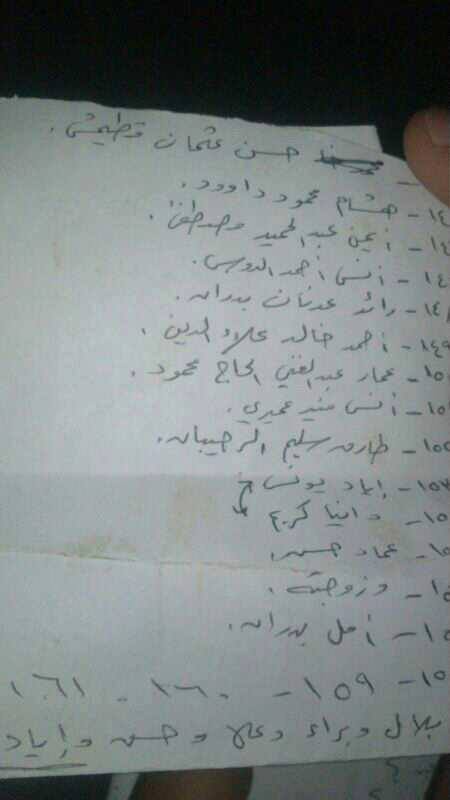 حسن عثمان قطيش.
١٤ - هشام محمود داوود.
١٤ - أيمن عبد الحميد مصطفى.
١٤ - أنس أحمد الدوس.
١٤٨ - رائد عدنان بدران.
١٤٩ - أحمد خالد علاء الدين.
١٥ - عمار عبد الغني الحاج محمود.
١٥ - أنس منير عميري.
١٥ - طارق سليم الرحيبان.
١٥٣ - إياد يونس
١٥ - دانيا كريم
١٥ - عماد حسن
١٥ - وزوجته.
١٥ - أمل بدران.
١٥ - ١٥٩ - ١٦٠ - ١٦١
بلال وبراء وعلا وحسن وإياد